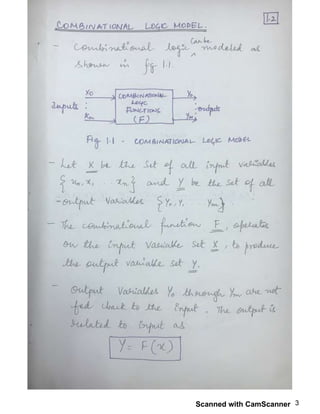 1.2
COMBINATIONAL LOGIC MODEL.
- Combinational logic can be modeled as
shown in fig 1.1.
Inputs : X0 Xn COMBINATIONAL LOGIC FUNCTIONS (F) Y0 Ym outputs
Fig 1.1 - COMBINATIONAL LOGIC MODEL
- Let X be the set of all input variables
{x0, x1 . . . xn} and Y be the set of all
- output variables {Y0, Y1 . . . Ym}
- The combinational function F, operates
on the input variable set X, to produce
the output variable set Y.
- Output variables Y0 through Ym are not
fed back to the input. The output is
related to input as
Y = F(X)
Scanned with CamScanner 3